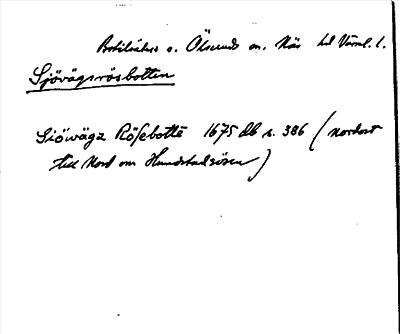 Bohlsäter o. Ölserud sn. Näs hd Värml. l.
Sjövägsrösbotten
Siöwägz Röſebotte 1675 db s. 386 (nordost
till Nord om Hundstadrösen)